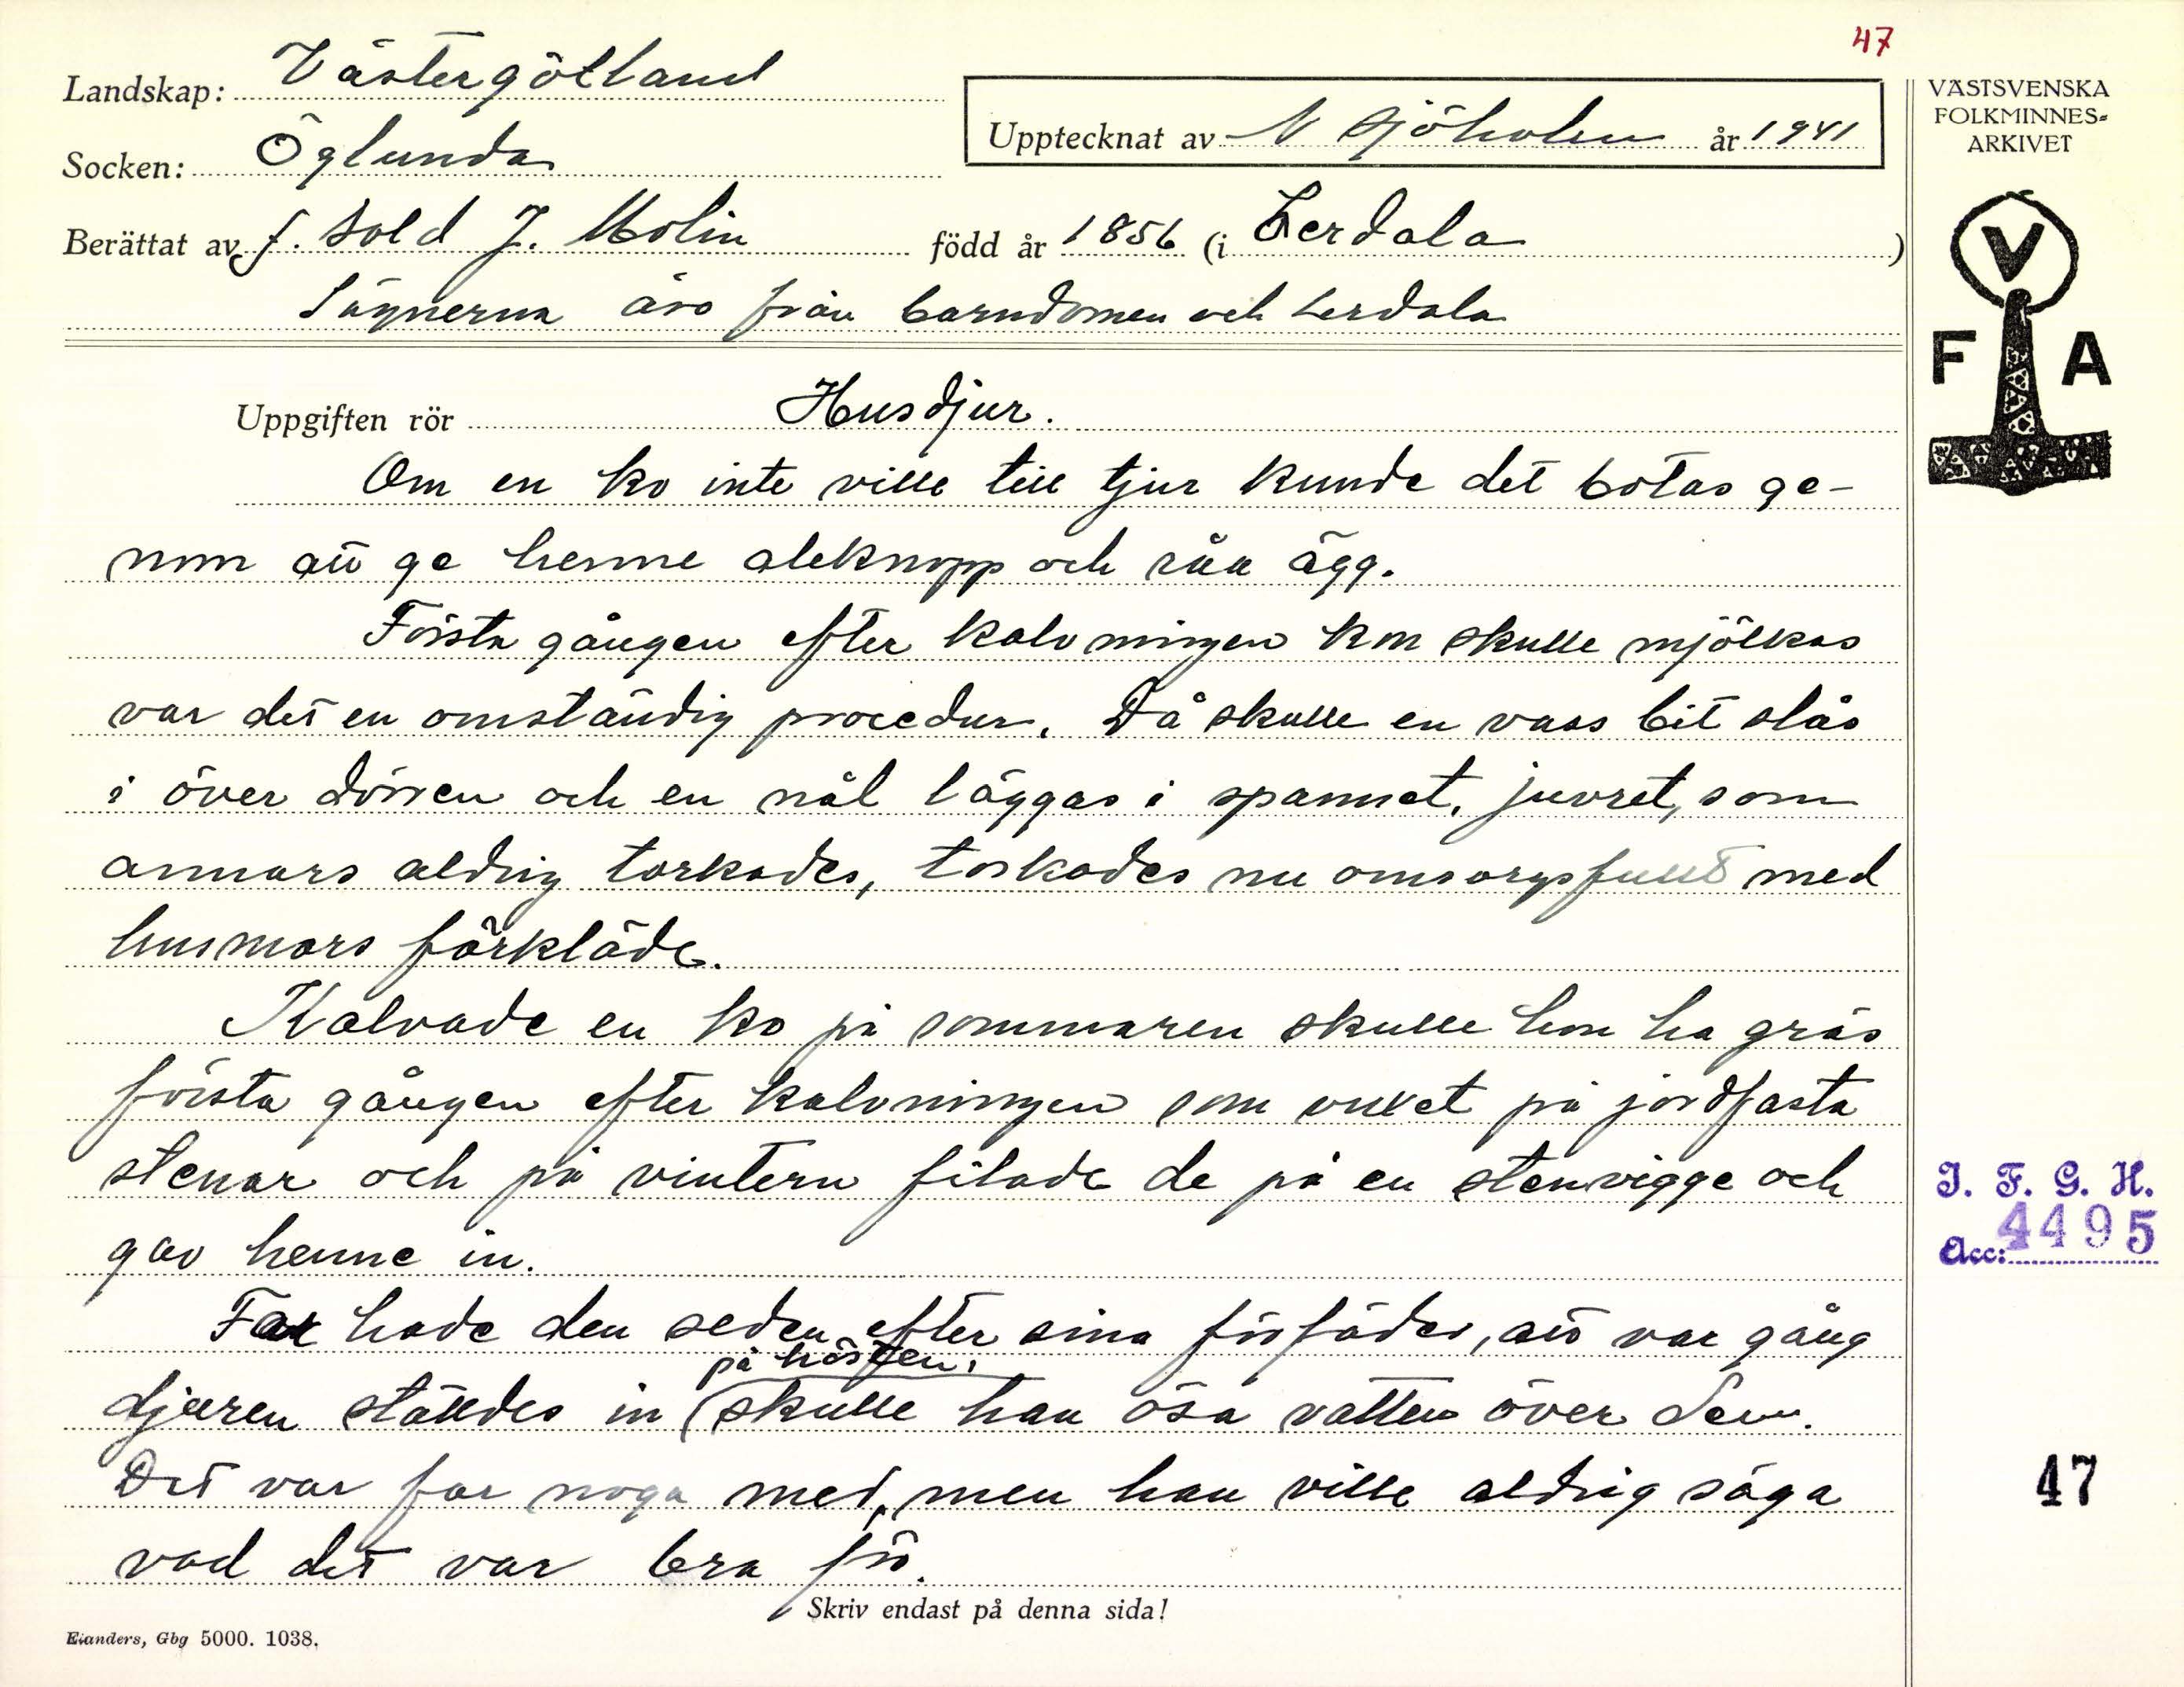 47
Landskap: Västergötland
Socken: Öglunda
Upptecknat av N Sjöholm år 1941
Berättat av f. sold J. Molin född år 1856 (i Lerdala)
Sägnerna äro från barndomen och Lerdala
VÄSTSVENSKA
FOLKMINNES-
ARKIVET
V
F A
Uppgiften rör Husdjur.
Om en ko inte ville till tjur kunde det botas ge-
nom att ge henne aleknopp och råa ägg.
Första gången efter kalvningen kon skulle mjölkas
var det en omständig procedur. Då skulle en vass bit slås
i över dörren och en nål läggas i spannet, juvret, som
annars aldrig torkades, torkades nu omsorgsfullt med
husmors förkläde.
Kalvade en ko på sommaren skulle hon ha gräs
första gången efter kalvningen som vuxet på jordfasta
stenar och på vintern filade de på en stenvigge och
gav henne in.
Far hade den seden efter sina förfäder, att var gång
på hösten.
djuren ställdes in skulle han ösa vatten över dem.
Det var far noga med, men han ville aldrig säga
vad det var bra för.
Skriv endast på denna sida!
Elanders, Gbg 5000. 1038.
I. F. G. H.
Acc: 4495
47